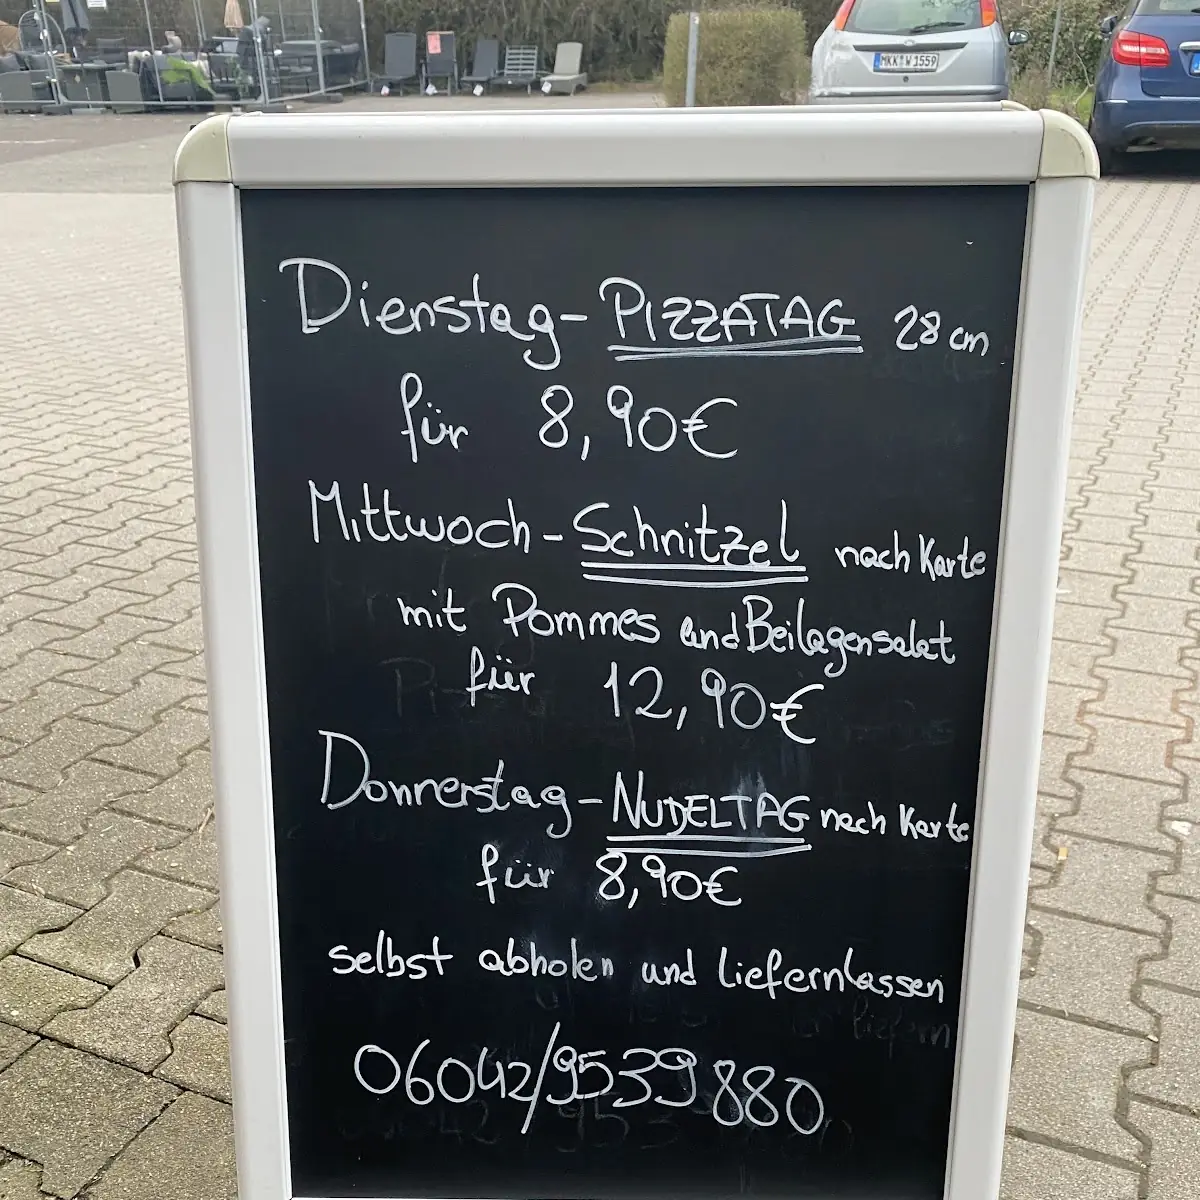 MKK W 1559
Dienstag - PIZZATAG 28 cm
für 8,90€
Mittwoch - Schnitzel nach Karte
mit Pommes und Beilagensalat
für 12,90€
Donnerstag - NUDELTAG nach Karte
für 8,90€
selbst abholen und liefernlassen
06042/9539880